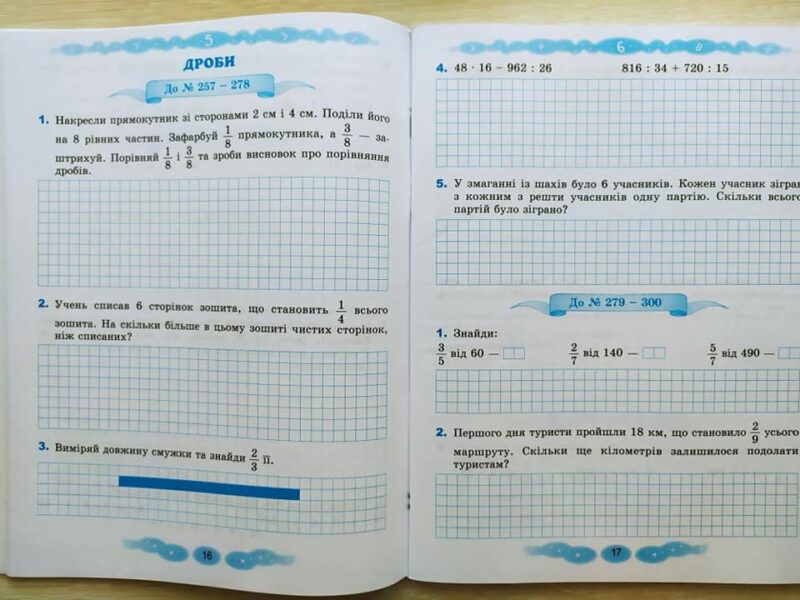 5
ДРОБИ
До № 257 – 278
1. Накресли прямокутник зі сторонами 2 см і 4 см. Поділи його
на 8 рівних частин. Зафарбуй 1/8 прямокутника, а 3/8 — за-
штрихуй. Порівняй 1/8 і 3/8 та зроби висновок про порівняння
дробів.
2. Учень списав 6 сторінок зошита, що становить 1/4 всього
зошита. На скільки більше в цьому зошиті чистих сторінок,
ніж списаних?
3. Виміряй довжину смужки та знайди 2/3 її.
16
6
4. 48 · 16 – 962 : 26 816 : 34 + 720 : 15
5. У змаганні із шахів було 6 учасників. Кожен учасник зіграв
з кожним з решти учасників одну партію. Скільки всього
партій було зіграно?
До № 279 – 300
1. Знайди:
3/5 від 60 — 2/7 від 140 — 5/7 від 490 —
2. Першого дня туристи пройшли 18 км, що становило 2/9 усього
маршруту. Скільки ще кілометрів залишилося подолати
туристам?
17